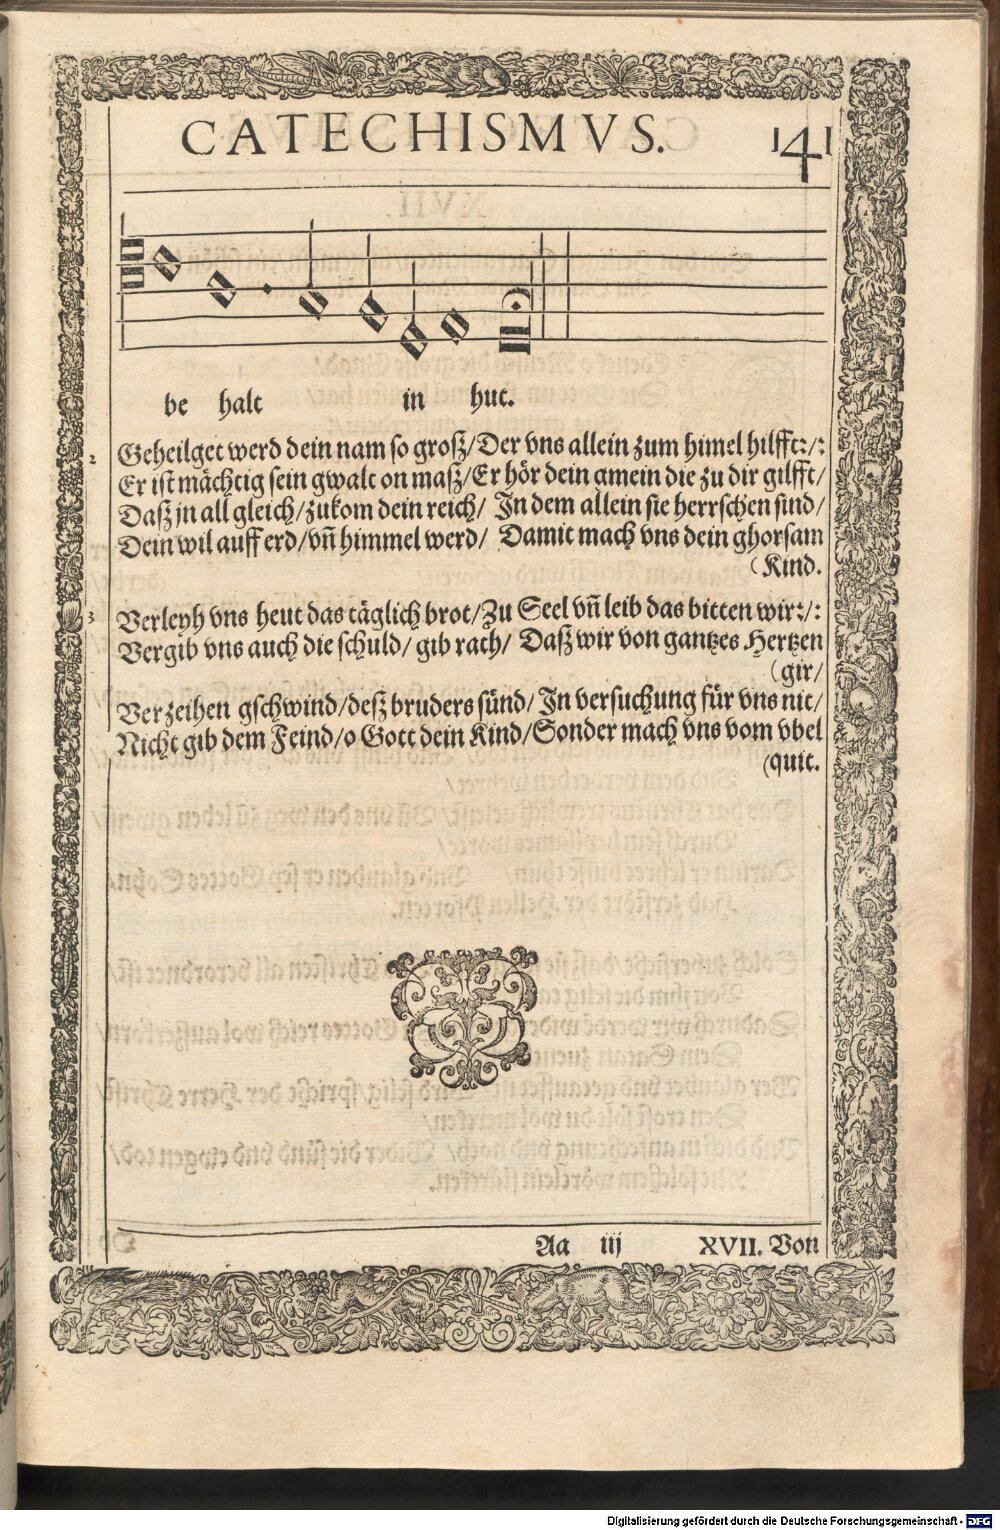 CATECHISMVS. 141
be halt in hut.
2 Geheilget werd dein nam so groß/Der vns allein zum himel hilfft:/:
Er ist mächtig sein gwalt on maß/Er hör dein gmein die zu dir gilfft/
Daß jn all gleich/zukom dein reich/ In dem allein sie herrschen sind/
Dein wil auff erd/vñ himmel werd/ Damit mach vns dein ghorsam
(Kind.
3 Verleyh vns heut das täglich brot/Zu Seel vñ leib das bitten wir:/:
Vergib vns auch die schuld/ gib rath/ Daß wir von gantzes Hertzen
(gir/
Verzeihen gschwind/deß bruders sünd/ In versuchung für vns nit/
Nicht gib dem Feind/o Gott dein Kind/Sonder mach vns vom vbel
(quit.
Aa iij XVII. Von
Digitalisierung gefördert durch die Deutsche Forschungsgemeinschaft - DFG